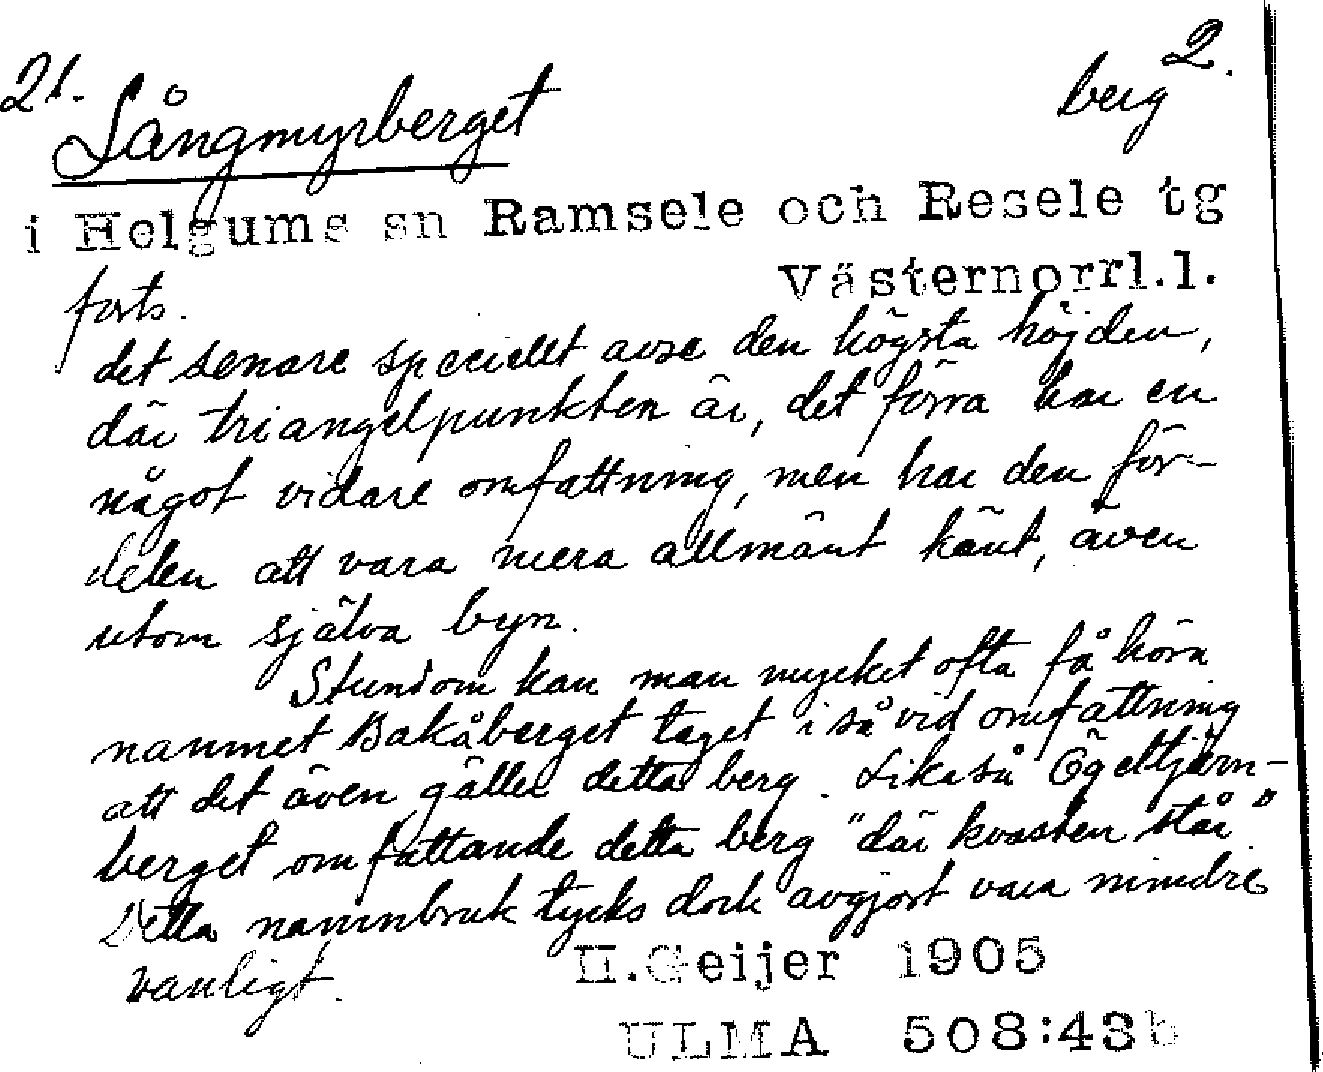 21. 2.
Långmyrberget berg
i Helgums sn Ramsele och Resele tg
Västernorrl.l.
forts.
det senare speciellt avse den högsta höjden,
där triangelpunkten är, det förra har en
något vidare omfattning, men har den för-
delen att vara mera allmänt känt, även
utom själva byn.
Stundom kan man mycket ofta få höra
namnet Bakåberget taget i så vid omfattning
att det även gäller detta berg. Likaså Ögeltjärn-
berget omfattande detta berg "där kvasten står"
Detta namnbruk tycks dock avgjort vara mindre
vanligt.
H.Geijer 1905
ULMA 508:43b